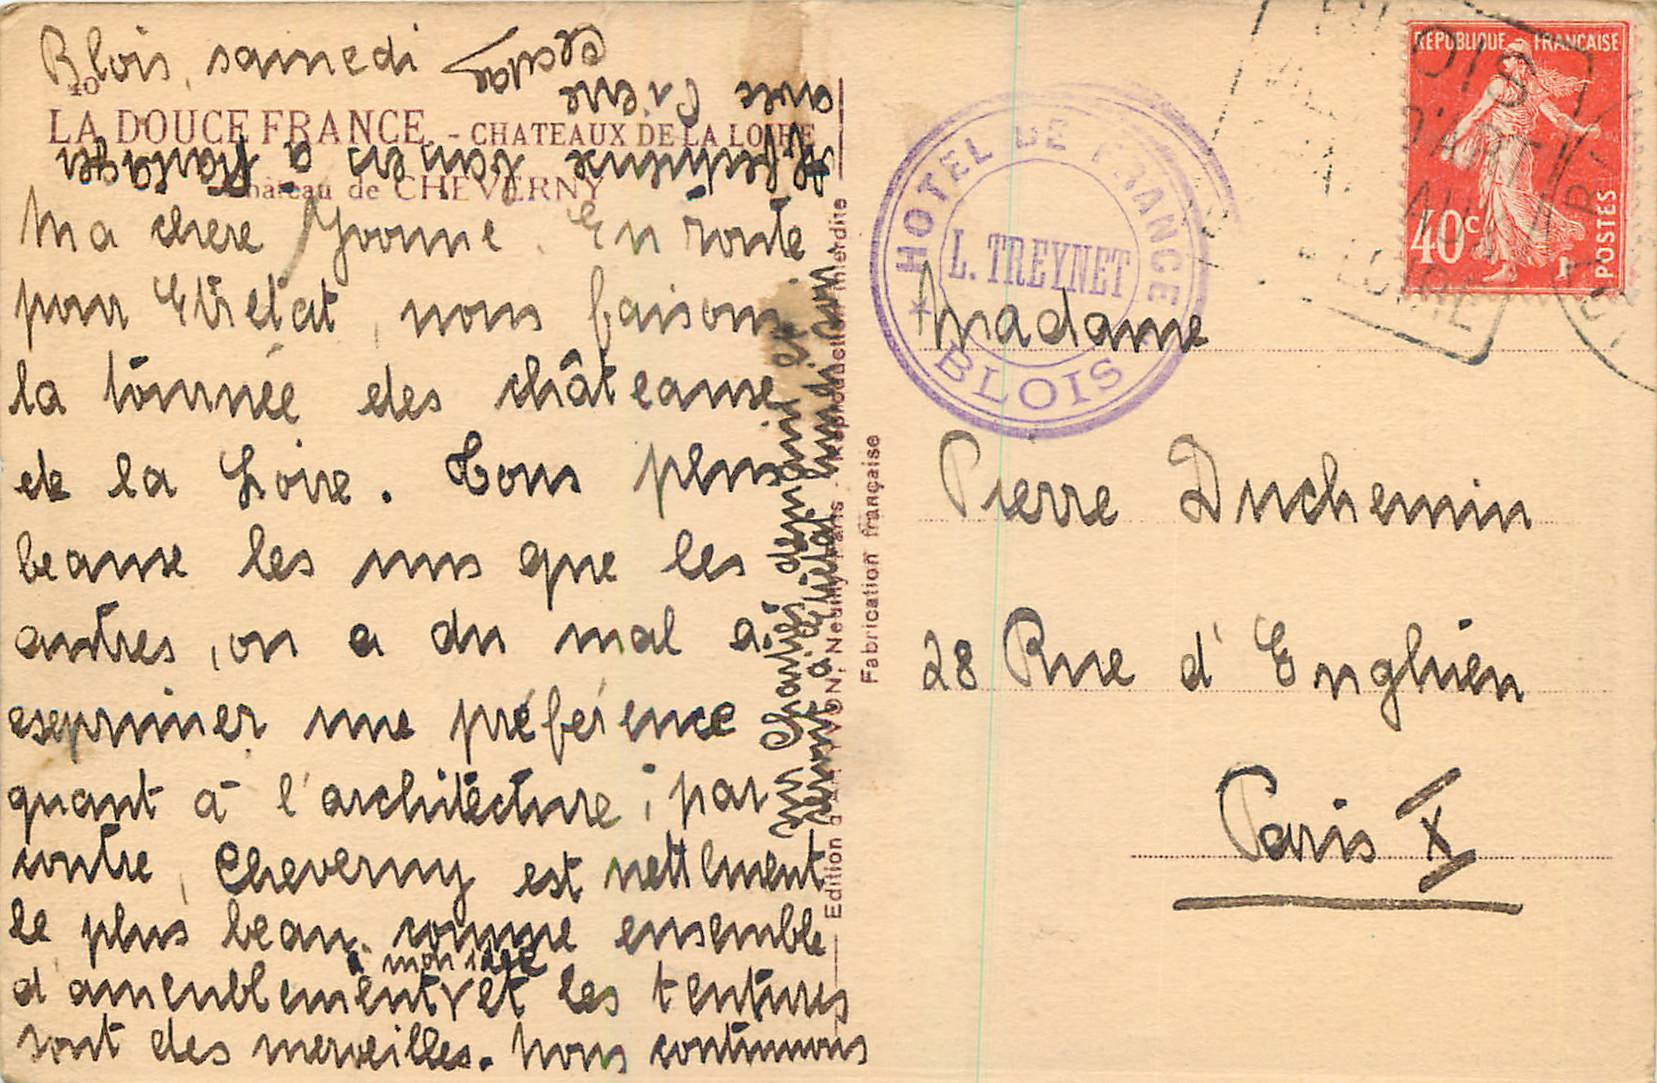 Blois, samedi
40
LA DOUCE FRANCE. - CHATEAUX DE LA LOIRE
Château de CHEVERNY
Ma chere Yvonne, En route
pour Etretat, nous faisons
la tournée des châteaux
de la Loire. Tous plus
beaux les uns que les
autres, on a du mal à
exprimer une préférence
quant à l'architecture, par
contre, Cheverny est nettement
le plus beau, comme ensemble
à mon idée
d'ameublement et les tentures
sont des merveilles. Nous continuons
sur Chartres demain et
serons à Etretat lundi soir
avec Pierre
Edition d'Art YVON, Neuilly-Paris - Reproduction interdite
Fabrication française
HOTEL DE FRANCE
L. TREYNET
* BLOIS
REPUBLIQUE FRANÇAISE
40c
POSTES
BLOIS
LOIRE
Madame
Pierre Duchemin
28 Rue d'Enghien
Paris X